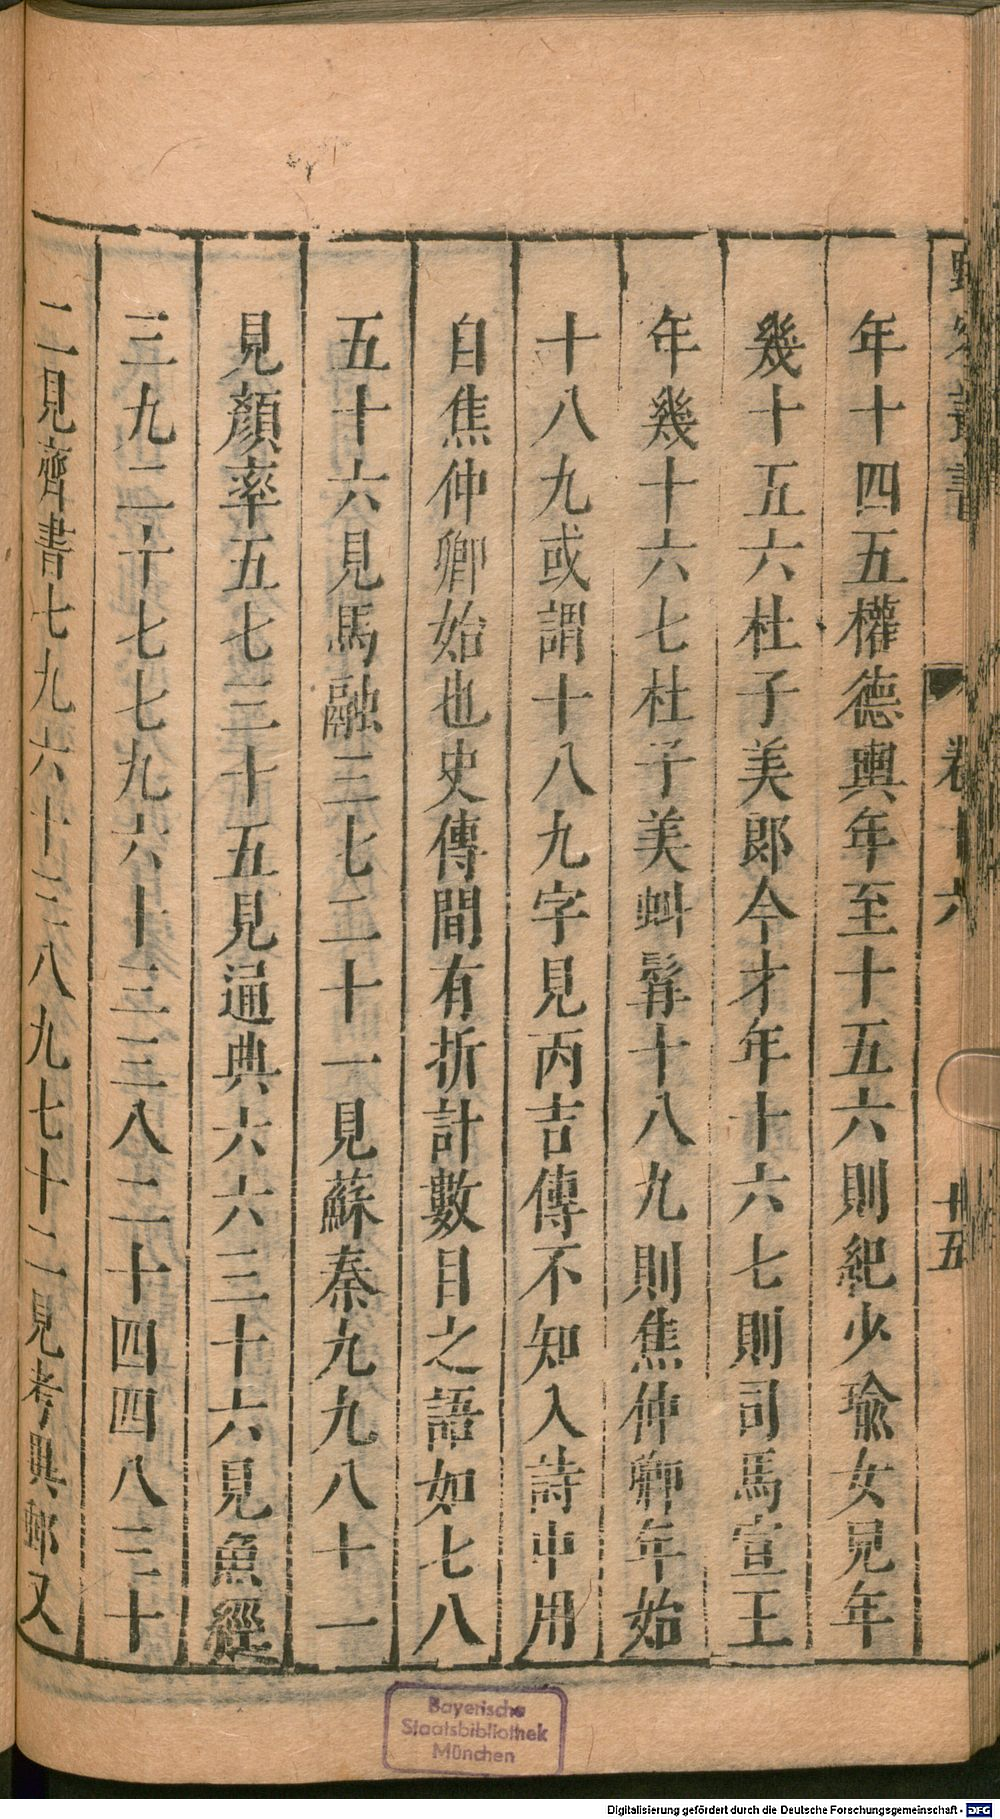 卷十六
十五
年十四五權德輿年至十五六則紀少瑜女兒年
幾十五六杜子美郎今才年十六七則司馬宣王
年幾十六七杜子美蚪髯十八九則焦仲卿年始
十八九或謂十八九字見丙吉傳不知入詩中用
自焦仲卿始也史傳間有折計數目之語如七八
五十六見馬融三七二十一見蘇秦九九八十一
見顏率五七三十五見通典六六三十六見魚經
三九二十七七九六十三三八二十四四八三十
二見齊書七九六十三八九七十二見考異郵又
Bayerische
Staatsbibliothek
München
Digitalisierung gefördert durch die Deutsche Forschungsgemeinschaft - DFG